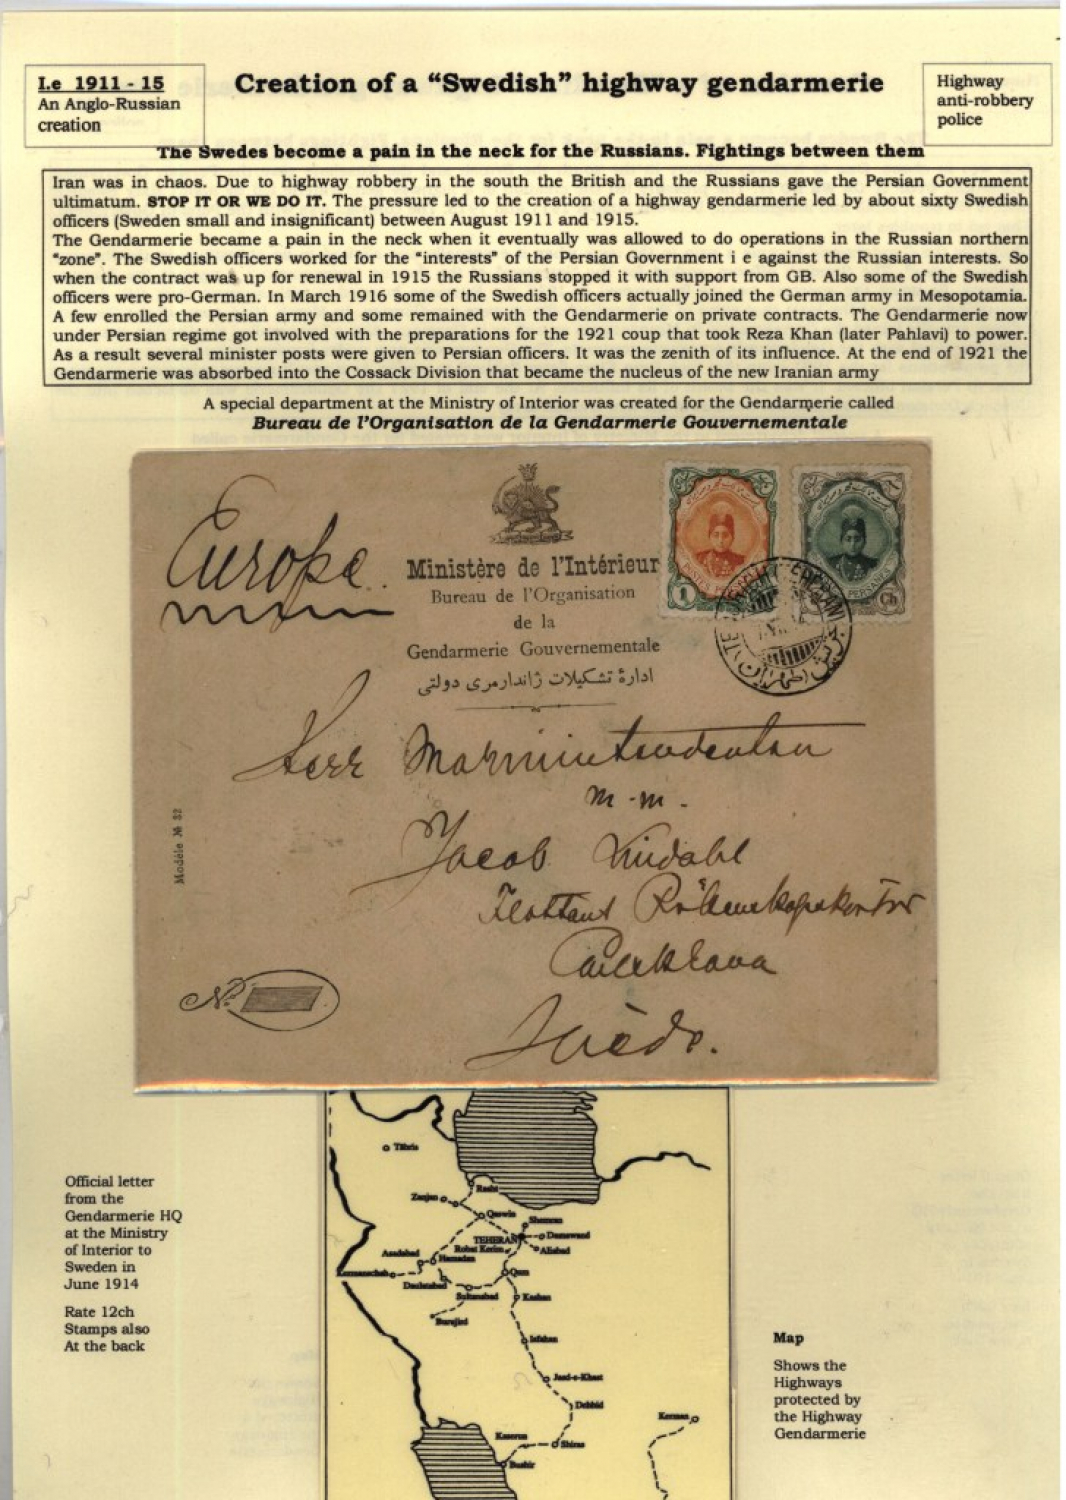 I.e 1911 - 15
An Anglo-Russian
creation
Creation of a “Swedish” highway gendarmerie
Highway
anti-robbery
police
The Swedes become a pain in the neck for the Russians. Fightings between them
Iran was in chaos. Due to highway robbery in the south the British and the Russians gave the Persian Government
ultimatum. STOP IT OR WE DO IT. The pressure led to the creation of a highway gendarmerie led by about sixty Swedish
officers (Sweden small and insignificant) between August 1911 and 1915.
The Gendarmerie became a pain in the neck when it eventually was allowed to do operations in the Russian northern
“zone”. The Swedish officers worked for the “interests” of the Persian Government i e against the Russian interests. So
when the contract was up for renewal in 1915 the Russians stopped it with support from GB. Also some of the Swedish
officers were pro-German. In March 1916 some of the Swedish officers actually joined the German army in Mesopotamia.
A few enrolled the Persian army and some remained with the Gendarmerie on private contracts. The Gendarmerie now
under Persian regime got involved with the preparations for the 1921 coup that took Reza Khan (later Pahlavi) to power.
As a result several minister posts were given to Persian officers. It was the zenith of its influence. At the end of 1921 the
Gendarmerie was absorbed into the Cossack Division that became the nucleus of the new Iranian army
A special department at the Ministry of Interior was created for the Gendarmerie called
Bureau de l’Organisation de la Gendarmerie Gouvernementale
Europe.
Ministère de l'Intérieur
Bureau de l'Organisation
de la
Gendarmerie Gouvernementale
ادارهٔ تشکیلات ژاندارمری دولتی
1
Ch
Herr Marinintendenten
m.m.
Jacob Lindahl
Flottans
Suède.
Modèle № 32
№
Official letter
from the
Gendarmerie HQ
at the Ministry
of Interior to
Sweden in
June 1914
Rate 12ch
Stamps also
At the back
Tabris
Zanjan
Rasht
Qazwin
Shemran
TEHERAN
Damawand
Robat Kerim
Aliabad
Asadabad
Hamadan
Kermanschah
Qum
Daulatabad
Sultanabad
Kashan
Burujird
Isfahan
Jasd-e-Khast
Dehbid
Kerman
Kazerun
Shiraz
Bushir
Map
Shows the
Highways
protected by
the Highway
Gendarmerie